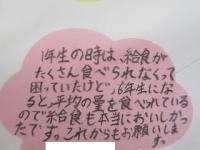 1年生の時は、給食が
たくさん食べられなくって
困っていたけど、6年生にな
ると、平均の量を食べれている
ので給食も本当においしかっ
たです。これからもお願いしま
す。